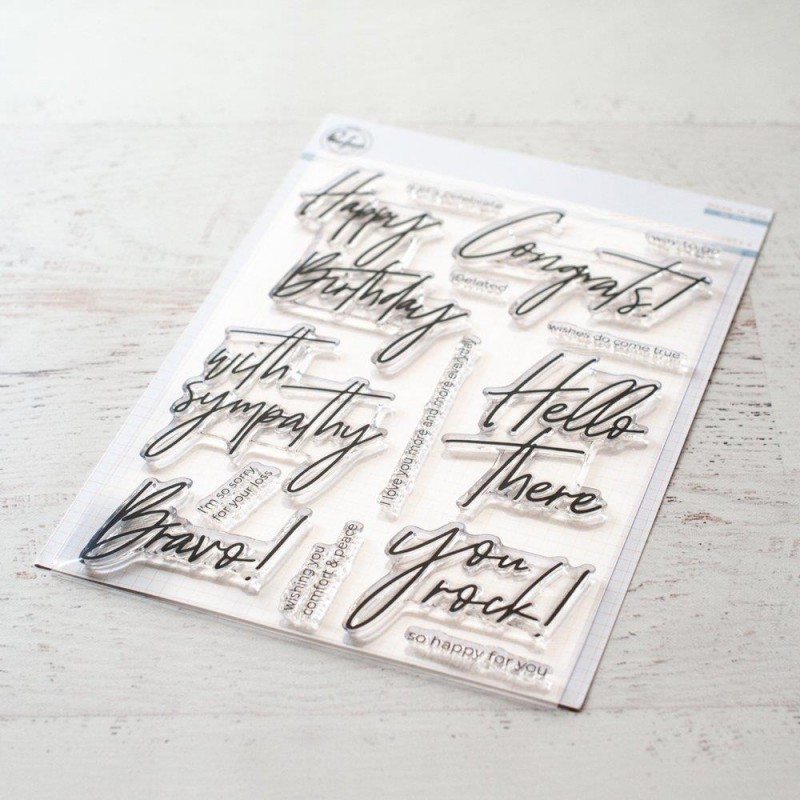 let's celebrate
Happy
Birthday
Belated
Congrats!
way to go
wishes do come true
with
sympathy
I love you more and more every day
Hello
There
I'm so sorry
for your loss
Bravo!
wishing you
comfort & peace
you
rock!
so happy for you